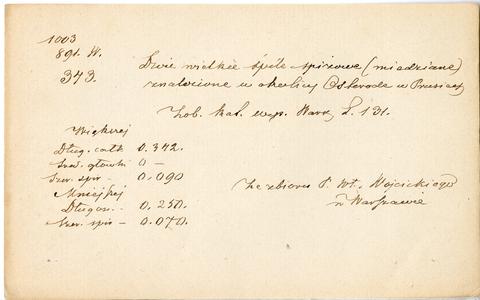 1003
891. W.
343.
Dwie wielkie śpile spiżowe (miedziane)
znalezione w okolicy Osterode w Prusiech
Zob. kat. wyp. Warsz. L. 131.
Większej
Dług. całk 0.342.
Szer. główki 0 —
Szer. spir — 0.090
Mniejszej
Długoś. — 0.250.
Szer. spir — 0.070.
Ze zbioru P. Wł. Wojcickiego
w Warszawie